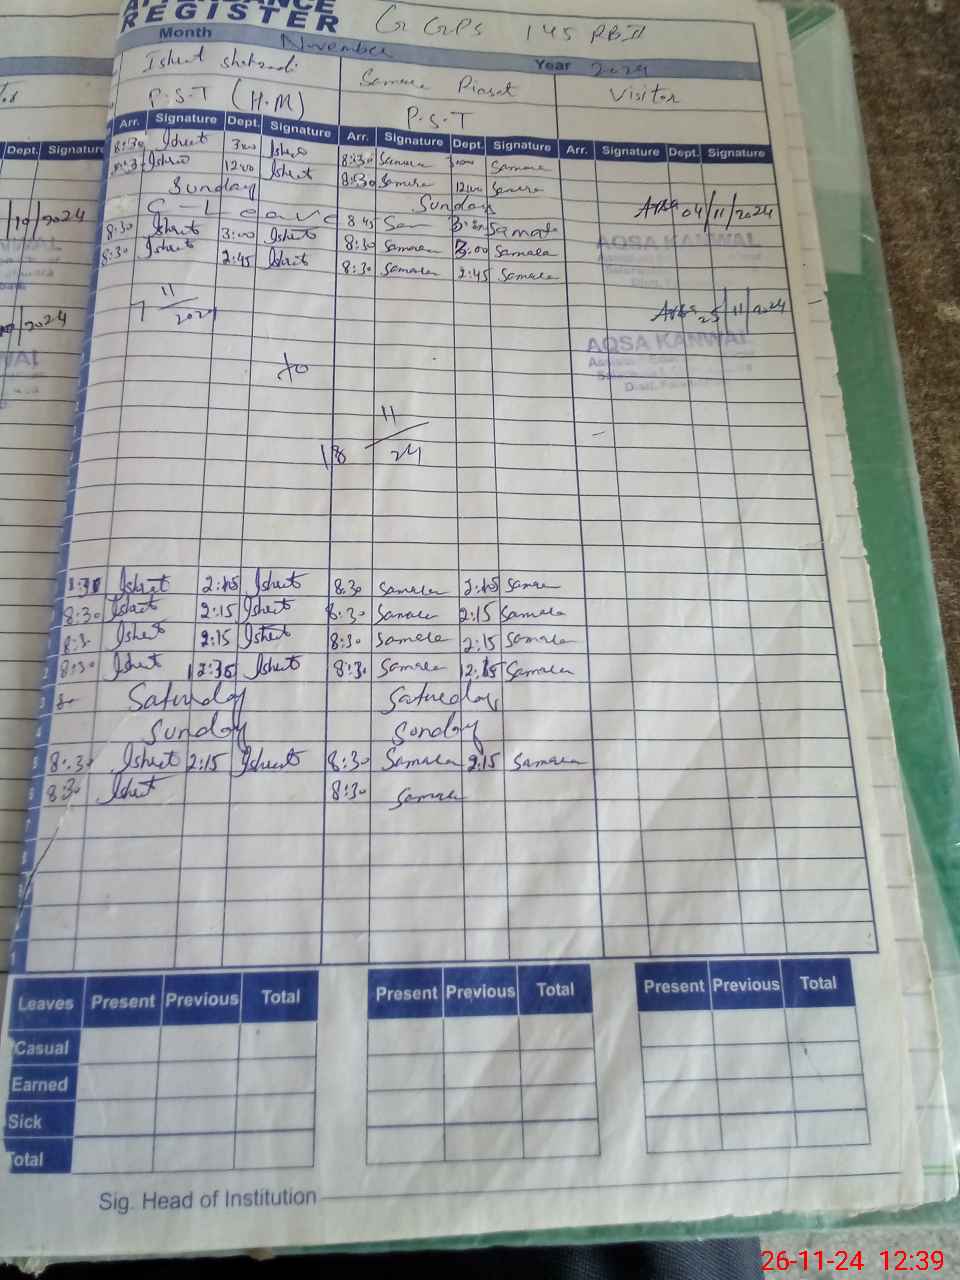 ATTENDANCE
REGISTER GGPS 145 RB II
Month November Year 2024
Ishrat shahzadi Samara Riasat Visitor
P.S.T (H.M) P.S.T
Dept. Signature Arr. Signature Dept. Signature Arr. Signature Dept. Signature Arr. Signature Dept. Signature
8:30 Ishrat 3:00 Ishrat 8:30 Samara Samara
Ishrat 12:00 Ishrat 8:30 Samara 12:00 Samara
Sunday Sunday
C-Leave 8:45 Sam Samara
8:30 Ishrat 3:00 Ishrat 8:30 Samara 3:00 Samara
8:30 Ishrat 2:45 Ishrat 8:30 Samara 2:45 Samara
04/11/2024
AQSA KANWAL
10/2024
7 11/2024
25/11/2024
/2024
AQSA KANWAL
To
18 11/24
8:30 Ishrat 2:15 Ishrat 8:30 Samara 2:15 Samara
8:30 Ishrat 2:15 Ishrat 8:30 Samara 2:15 Samara
8:3 Ishrat 2:15 Ishrat 8:30 Samara 2:15 Samara
8:30 Ishrat 12:35 Ishrat 8:30 Samara 12:15 Samara
Saturday Saturday
Sunday Sunday
8:30 Ishrat 2:15 Ishrat 8:30 Samara 2:15 Samara
8:30 Ishrat 8:30 Samara
Leaves Present Previous Total Present Previous Total Present Previous Total
Casual
Earned
Sick
Total
Sig. Head of Institution
26-11-24 12:39